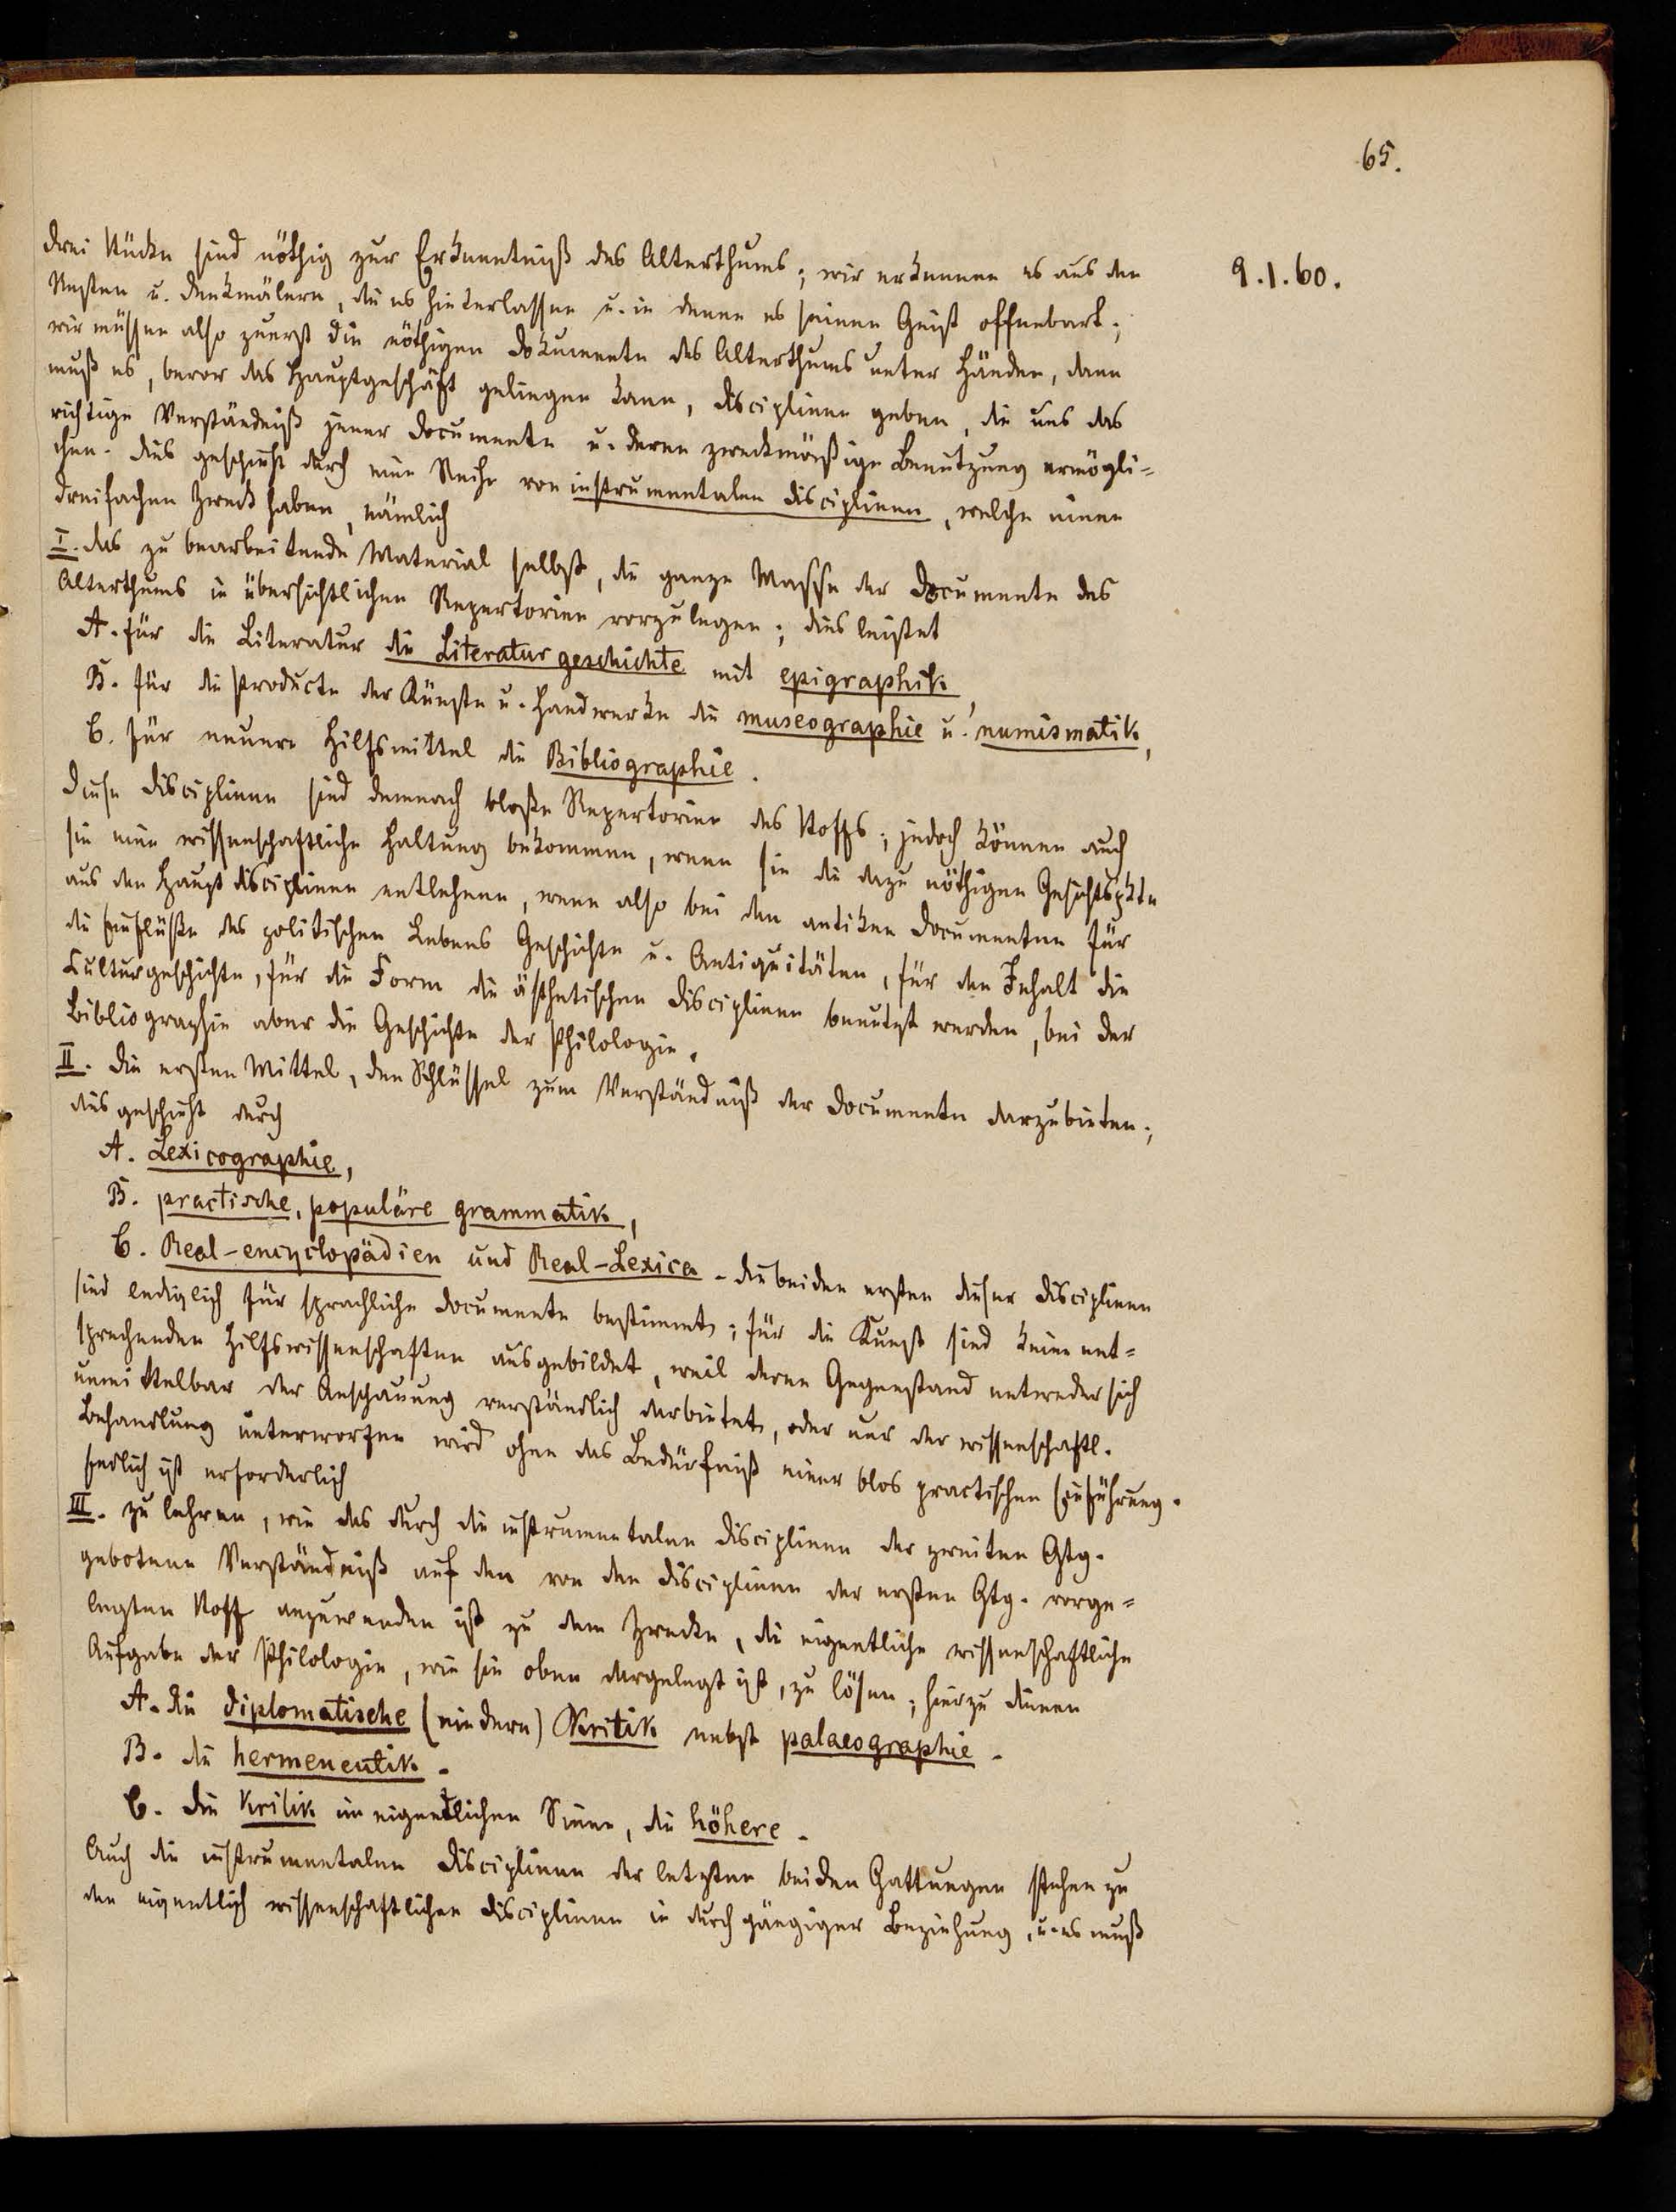 65.
9.1.60.
Drei Stücke sind nöthig zur Erkenntniß des Alterthums; wir erkennen es aus den
Resten u. Denkmälern, die es hinterlassen u. in denen es seinen Geist offenbart;
wir müssen also zuerst die nöthigen Dokumente des Alterthums unter Händen, dann
muß es, bevor das Hauptgeschäft gelingen kann, Disciplinen geben, die uns das
richtige Verständniß jener Documente u. deren zweckmäßige Benutzung ermögli=
chen. Dies geschieht durch eine Reihe von instrumentalen Disciplinen, welche einen
dreifachen Zweck haben, nämlich
I. das zu bearbeitende Material selbst, die ganze Masse der Documente des
Alterthums in übersichtlichen Repertorien vorzulegen; dies leistet
A. für die Literatur die Literaturgeschichte mit epigraphik,
B. für die Producte der Künste u. Handwerke die museographie u. numismatik,
C. für neuere Hilfsmittel die Bibliographie.
Diese Disciplinen sind demnach bloße Repertorien des Stoffs; jedoch können auch
sie eine wissenschaftliche Haltung bekommen, wenn sie die dazu nöthigen Gesichtspkte
aus den Hauptdisciplinen entlehnen, wenn also bei den antiken Documenten für
die Einflüße des politischen Lebens Geschichte u. Antiquitäten, für den Inhalt die
Culturgeschichte, für die Form die ästhetischen Disciplinen benutzt werden, bei der
Bibliographie aber die Geschichte der Philologie.
II. die ersten Mittel, den Schlüssel zum Verständniß der Documente darzubieten;
dies geschieht durch
A. Lexicographie,
B. practische, populäre grammatik,
C. Real-encyclopädien und Real-Lexica - die beiden ersten dieser Disciplinen
sind lediglich für sprachliche Documente bestimmt; für die Kunst sind keine ent=
sprechenden Hilfswissenschaften ausgebildet, weil deren Gegenstand entweder sich
unmittelbar der Anschauung verständlich darbietet, oder nur der wissenschaftl.
Behandlung unterworfen wird ohne das Bedürfniß einer blos practischen Einführung.
Endlich ist erforderlich
III. zu lehren, wie das durch die instrumentalen Disciplinen der zweiten Gtg.
gebotene Verständniß auf den von den Disciplinen der ersten Gtg. vorge=
legten Stoff anzuwenden ist zu dem Zwecke, die eigentliche wissenschaftliche
Aufgabe der Philologie, wie sie oben dargelegt ist, zu lösen; hierzu dienen
A. die diplomatische (niedere) Kritik nebst palaeographie.
B. die hermeneutik.
C. die Kritik im eigentlichen Sinne, die höhere.
Auch die instrumentalen Disciplinen der letzten beiden Gattungen stehen zu
den eigentlich wissenschaftlichen Disciplinen in durchgängiger Beziehung, u. es muß